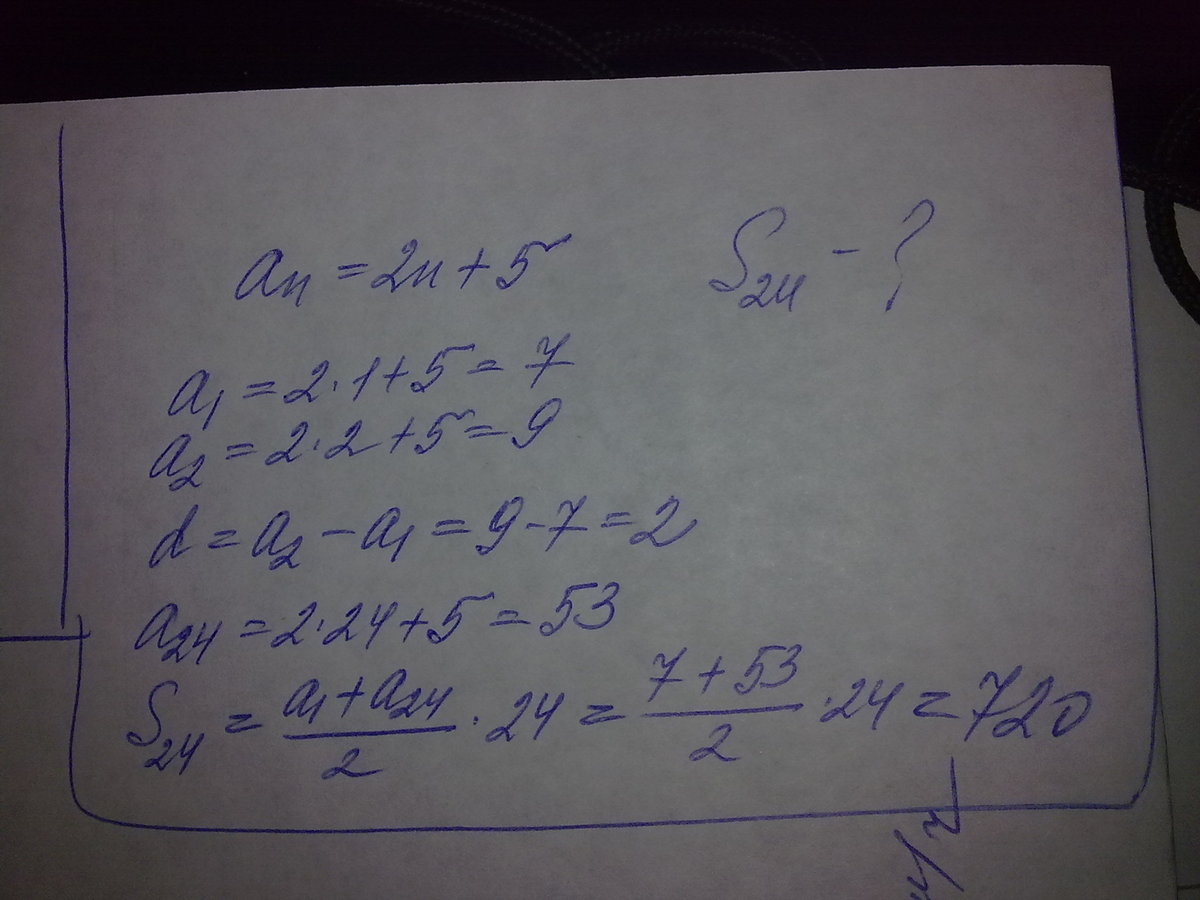 aₙ = 2n + 5 S₂₄ - ?
a₁ = 2·1 + 5 = 7
a₂ = 2·2 + 5 = 9
d = a₂ - a₁ = 9 - 7 = 2
a₂₄ = 2·24 + 5 = 53
S₂₄ = (a₁ + a₂₄)/2 · 24 = (7 + 53)/2 · 24 = 720